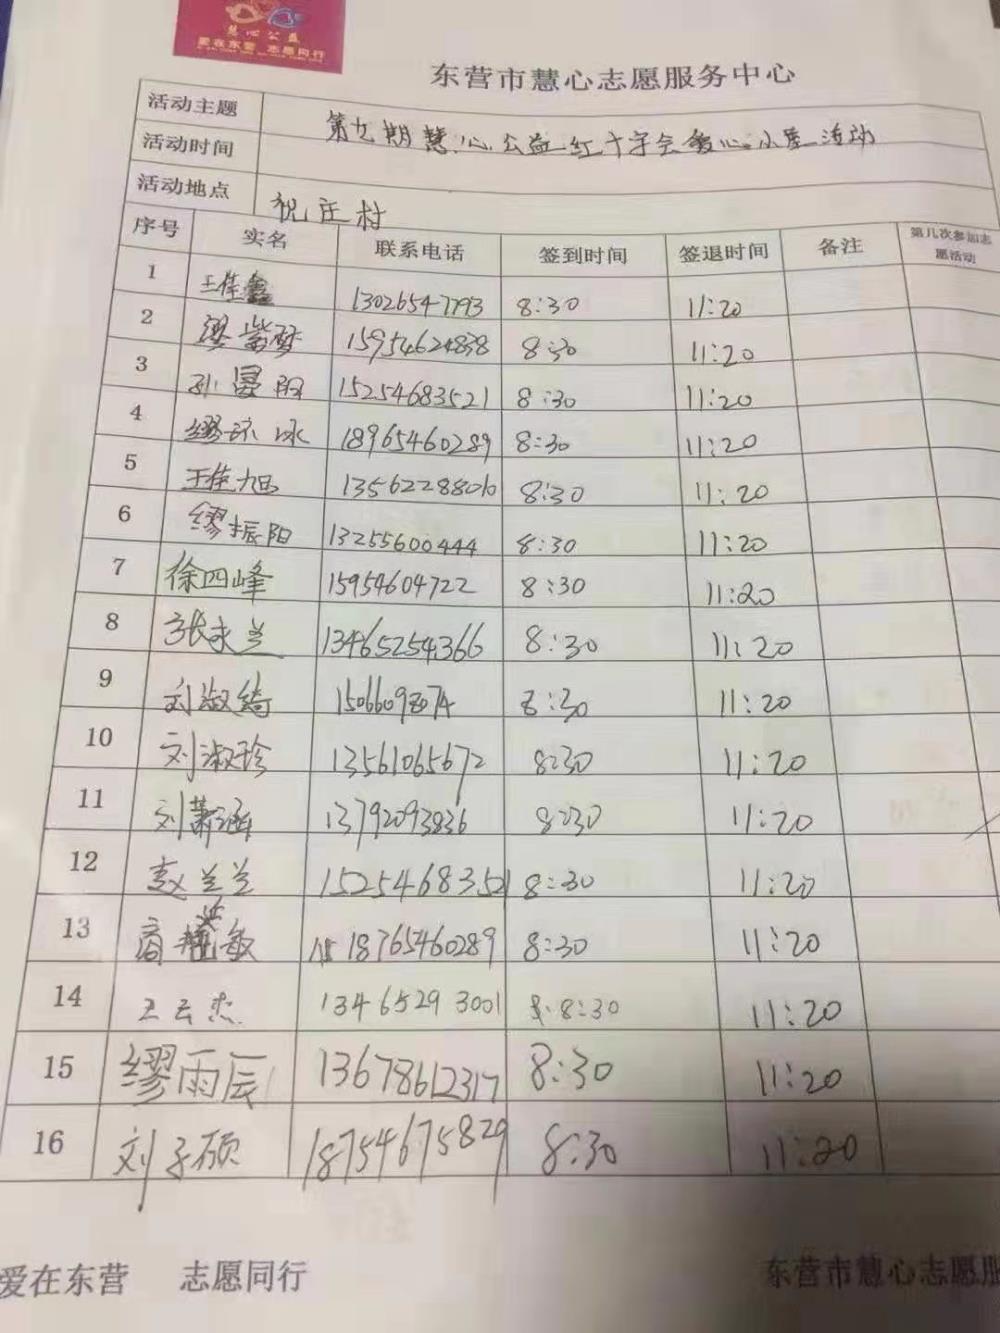 慧心公益
爱在东营 志愿同行
东营市慧心志愿服务中心
活动主题 第九期慧心公益红十字会爱心小屋活动
活动时间
活动地点 祝庄村
序号 实名 联系电话 签到时间 签退时间 备注 第几次参加志愿活动
1 王佳鑫 13026547793 8:30 11:20
2 缪紫梦 15954624838 8:30 11:20
3 孙 阳 15254683521 8:30 11:20
4 缪 冰 18965460289 8:30 11:20
5 王佳旭 13562288010 8:30 11:20
6 缪振阳 13255600444 8:30 11:20
7 徐四峰 15954604722 8:30 11:20
8 张永兰 13465254366 8:30 11:20
9 刘淑绮 8:30 11:20
10 刘淑珍 13561065672 8:30 11:20
11 刘萧涵 13792093836 8:30 11:20
12 赵兰兰 15254683521 8:30 11:20
13 商 敏 18765460289 8:30 11:20
14 王云杰 13465293001 8:30 11:20
15 缪雨辰 13678612317 8:30 11:20
16 刘子硕 18754675829 8:30 11:20
爱在东营 志愿同行 东营市慧心志愿服